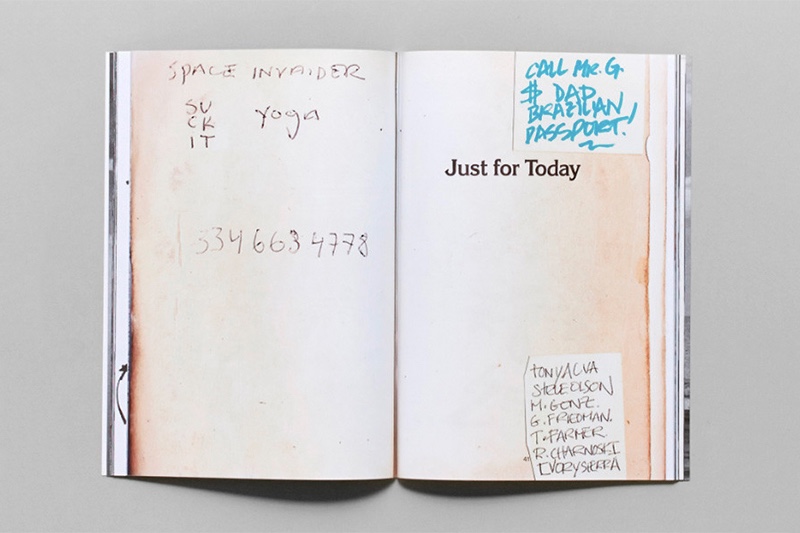 SPACE INVAIDER
SU
CK
IT
yoga
334 663 4778
CALL MR. G.
$ DAD
BRAZILIAN
PASSPORT!
Just for Today
TONYALVA
STEVE OLSON
M. GONZ.
G. FRIEDMAN.
T. FARMER.
R. CHARNOSKI
IVORY SIERRA